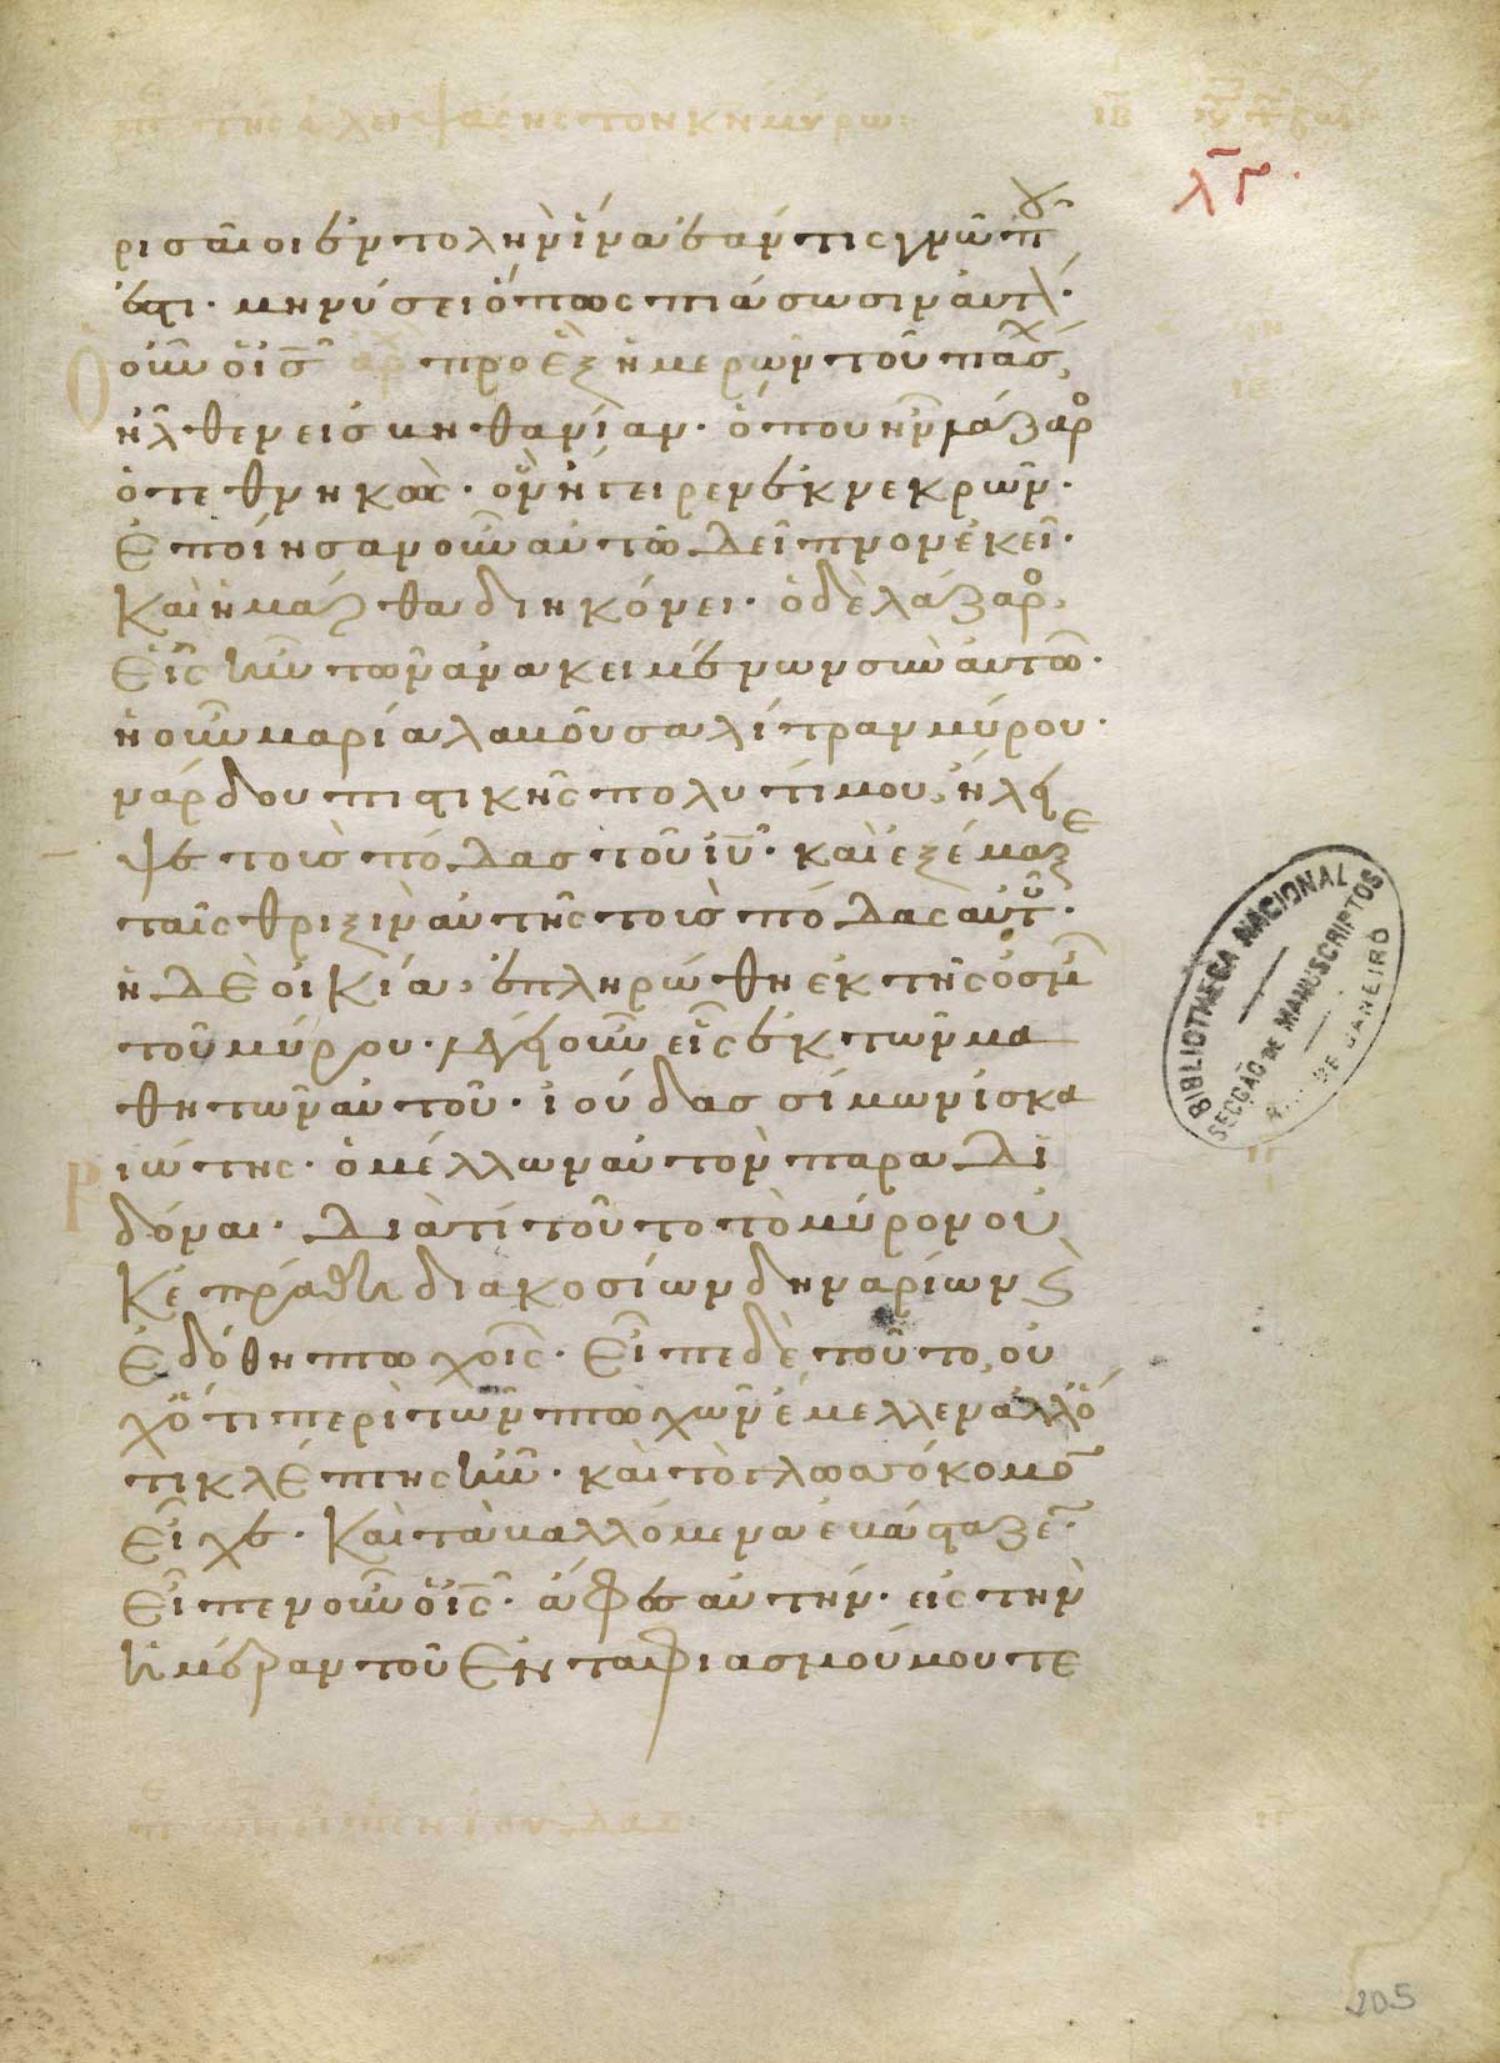 περὶ τῆς ἀλειψάσης τὸν κ̄ν μύρω
ιβ
λγ
ρισαῖοι ἐντολὴν ἵνα ἐάν τις γνῶ ποῦ
ἐστι· μηνύσει ὅπως πιάσωσιν αυτ
οὖν ὁ ισ πρὸ ἓξ ἡμερῶν τοῦ πάσχ
ἦλθεν εἰς βηθανίαν· ὅπου ἦν λάζαρο
ὁ τεθνηκὼς· ὃν ἤγειρεν ἐκ νεκρῶν·
Ἐποίησαν οὖν αὐτῶ δεῖπνον ἐκεῖ·
Καὶ ἡ μάρθα διηκόνει· ὁ δὲ λάζαρο
Εἷς ἦν τῶν ἀνακειμένων σὺν αὐτῶ·
ἡ οὖν μαρία λαβοῦσα λίτραν μύρου·
νάρδου πιστικῆς πολυτίμου, ἤλει
ψε τοὺς πόδας τοῦ ιυ· καὶ ἐξέμαξε
ταῖς θριξὶν αὐτῆς τοὺς πόδας αὐτοῦ·
ἡ δὲ οἰκία, ἐπληρώθη ἐκ τῆς ὀσμῆ
τοῦ μύρου· λέγει οὖν εἷς ἐκ τῶν μα
θητῶν αὐτοῦ· ἰούδας σίμων ἰσκα
ριώτης· ὁ μέλλων αὐτὸν παραδι
δόναι· Διὰτί τοῦτο τὸ μύρον οὐ
Κ ἐπράθη διακοσίων δηναρίων ϗ
Ἐδόθη πτωχοῖς· Εἶπε δὲ τοῦτο, οὐ
χ ὅτι περὶ τῶν πτωχῶν ἔμελλεν ἀλλ ὅ
τι κλέπτης ἦν· καὶ τὸ γλωσσόκομο
Εἶχε· Καὶ τὰ βαλλόμενα ἐβάσταζε
Εἶπεν οὖν ὁ ις· ἄφες αὐτήν· εἰς τὴν
ἡμέραν τοῦ Ἐνταφιασμοῦ μου τε
BIBLIOTHECA NACIONAL
SECÇÃO DE MANUSCRIPTOS
RIO DE JANEIRO
205